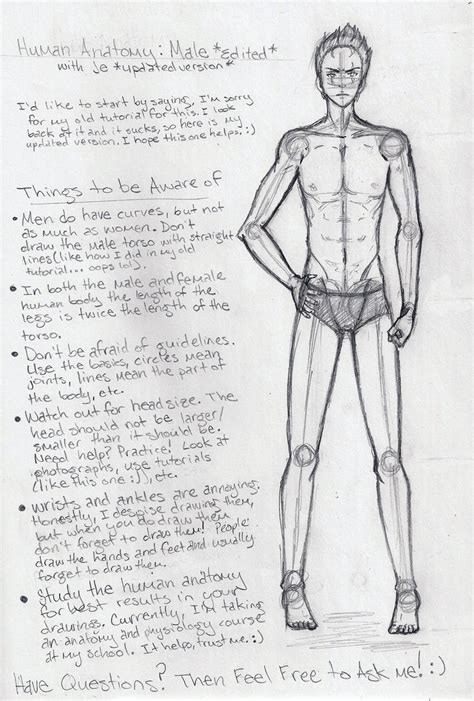 Human Anatomy: Male *edited*
with Je *updated version*
I'd like to start by saying, I'm sorry
for my old tutorial for this. I look
back at it and it sucks, so here is my
updated version. I hope this one helps. :)
Things to be Aware of
• Men do have curves, but not
as much as women. Don't
draw the male torso with straight
lines (like how I did in my old
tutorial... oops lol).
• In both the male and female
human body the length of the
legs is twice the length of the
torso.
• Don't be afraid of guidelines.
Use the basics, circles mean
joints, lines mean the part of
the body, etc.
• Watch out for head size. The
head should not be larger/
smaller than it should be.
Need help? Practice! Look at
photographs, use tutorials
(like this one :)), etc.
• wrists and ankles are annoying.
Honestly, I despise drawing them,
but when you do draw them
don't forget to draw them! People
draw the hands and feet and usually
forget to draw them.
• Study the human anatomy
for best results in your
drawings. Currently, I'm taking
an anatomy and physiology course
at my school. It helps, trust me. :)
Have Questions? Then Feel Free to Ask me! :)